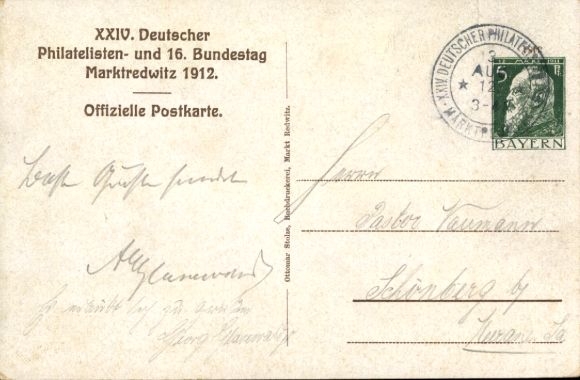 XXIV. Deutscher
Philatelisten- und 16. Bundestag
Marktredwitz 1912.
Offizielle Postkarte.
Beste Grüße sendet
Es erlaubt sich zu
Georg
Ottomar Stolze, Buchdruckerei, Markt Redwitz.
XXIV. DEUTSCHER PHILATELIS
3
AUG
12
3-4
MARKT
5 Pf.
BAYERN
Herrn
Pastor Naumann
Schönberg b/
Meerane, Sa